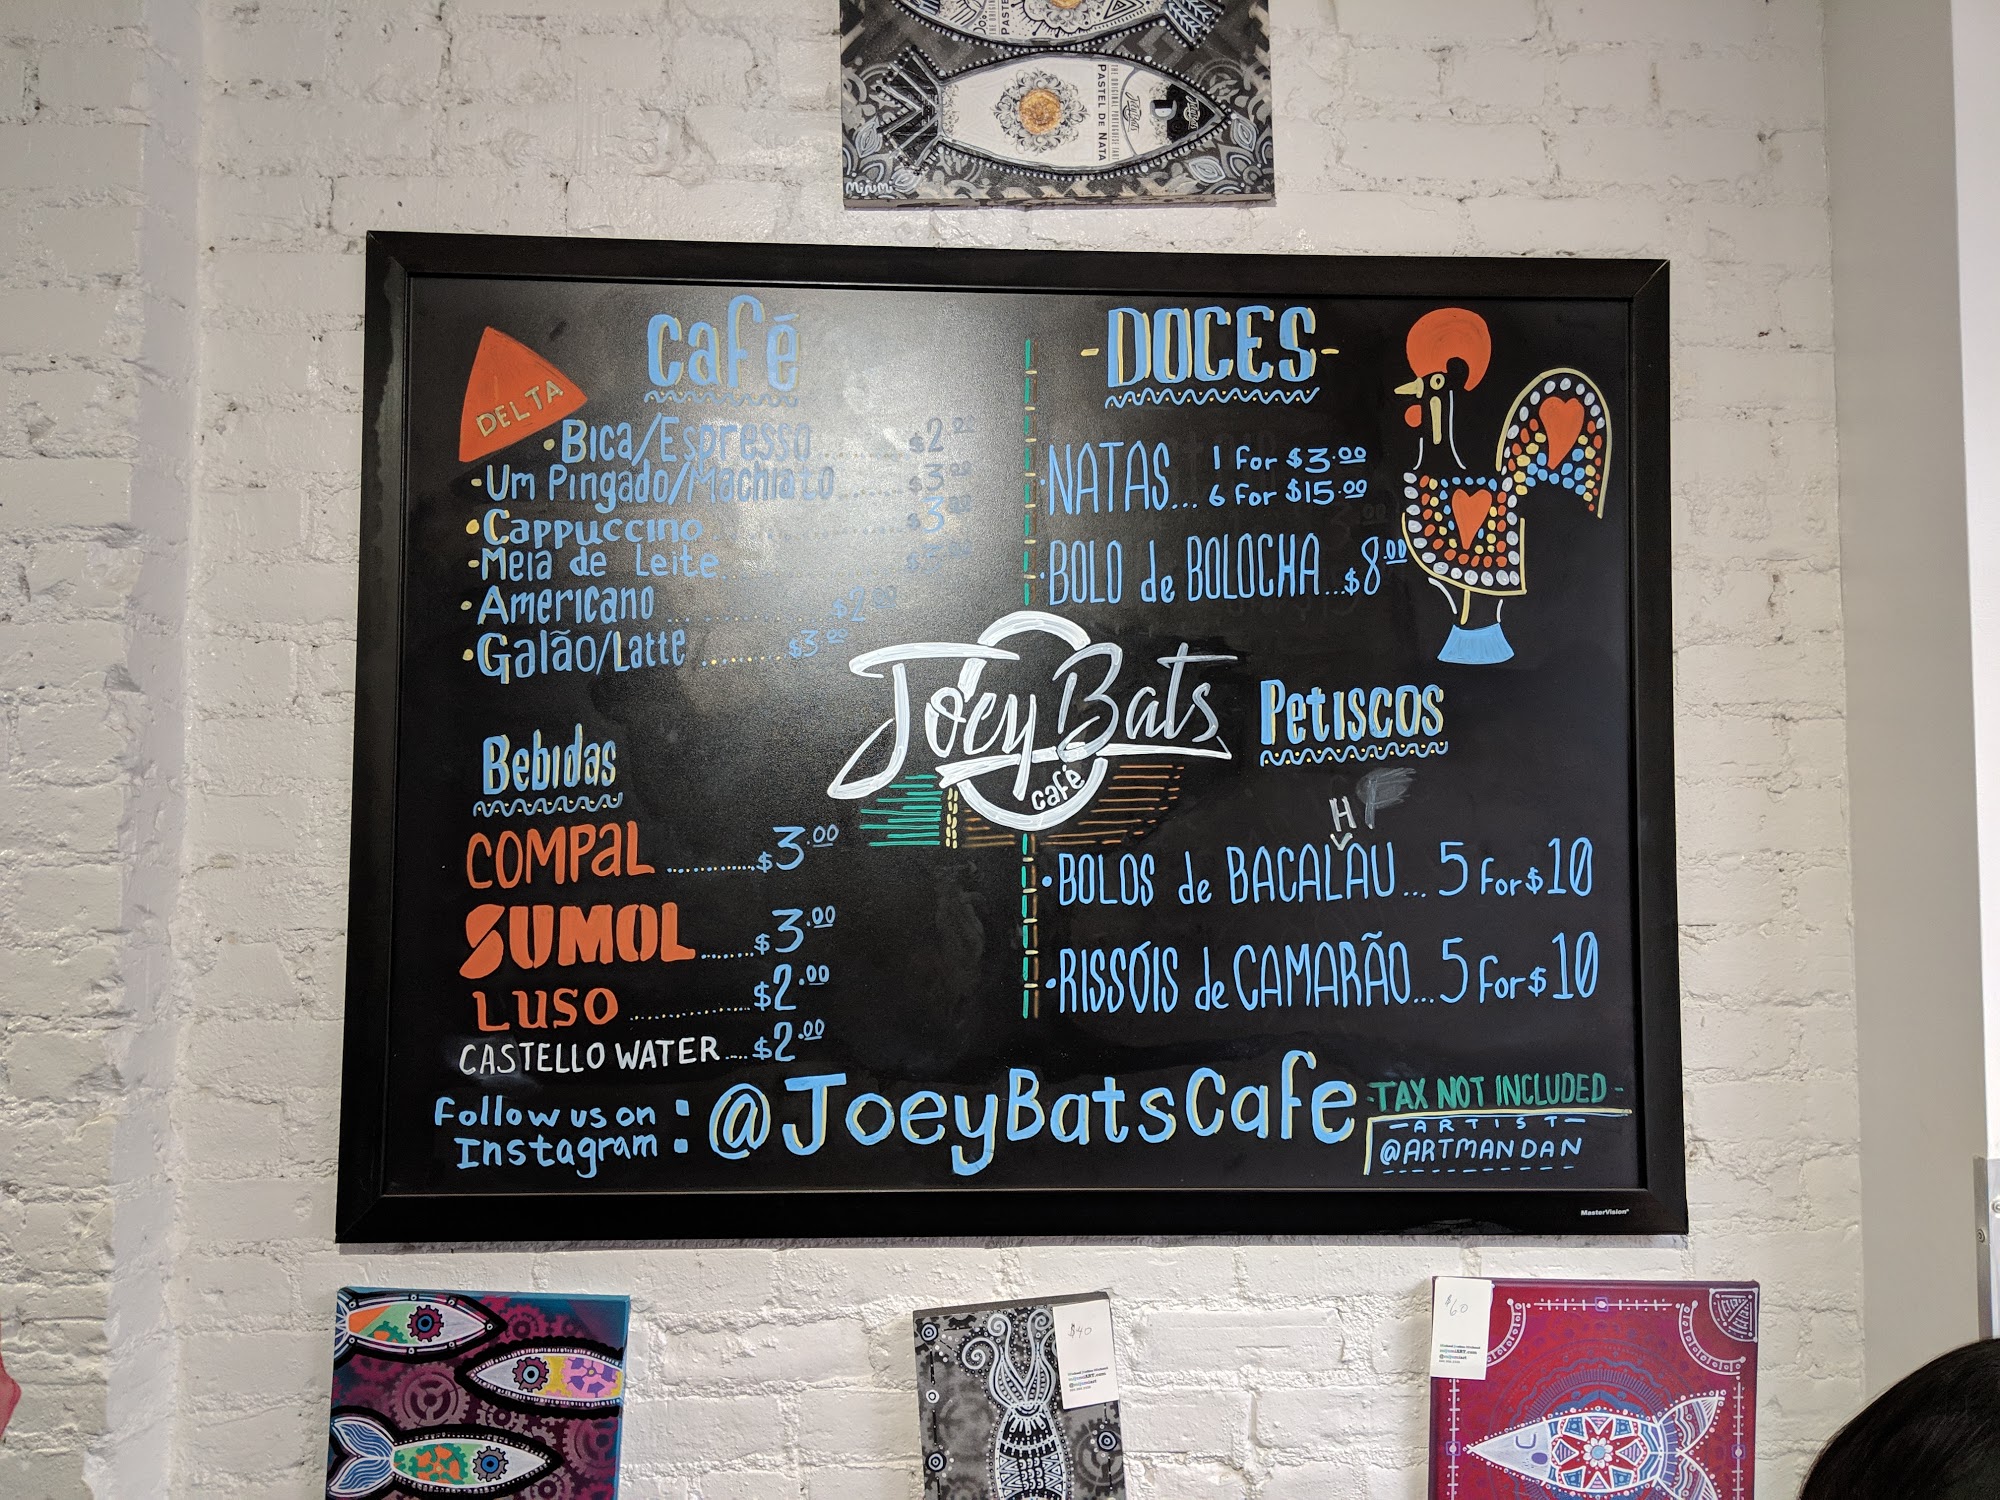 THE ORIGINAL PORTUGUESE TART
PASTEL DE NATA
Joey Bats
Misumi
Café
DELTA
Bica/Espresso........$2.00
Um Pingado/Machiato......$3.00
Cappuccino............$3.00
Meia de Leite............$3.00
Americano............$2.00
Galão/Latte........$3.00
Bebidas
COMPAL.........$3.00
SUMOL......$3.00
LUSO............$2.00
CASTELLO WATER....$2.00
-DOCES-
NATAS... 1 for $3.00
6 for $15.00
BOLO de BOLOCHA...$8.00
Joey Bats
café
Petiscos
H
BOLOS de BACALAU... 5 for $10
RISSÓIS de CAMARÃO... 5 for $10
Follow us on
Instagram : @JoeyBatsCafe
-TAX NOT INCLUDED-
-ARTIST-
@ARTMANDAN
MasterVision
$40
$60